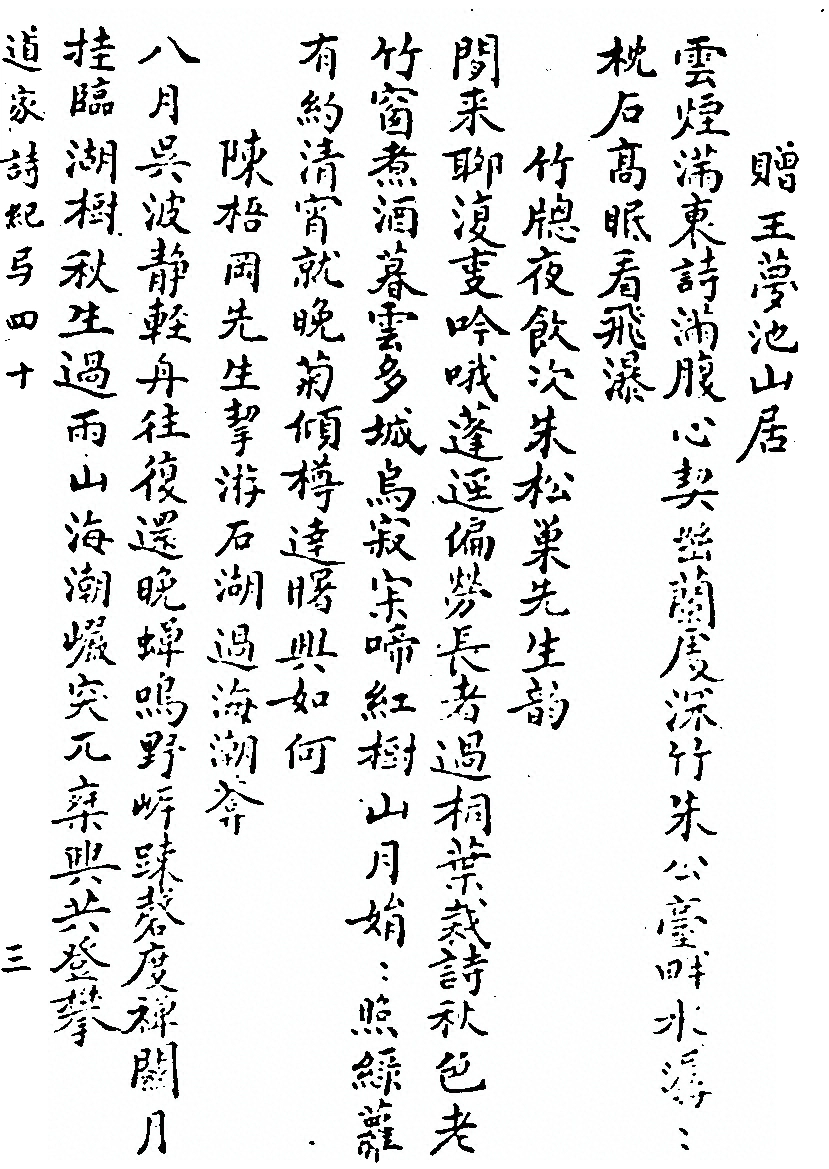 贈王夢池山居
雲煙滿東詩滿腹心契幽蘭處深竹朱公臺畔水潺〻
枕石高眠看飛瀑
竹牕夜飲次朱松巢先生韵
閒来聊復事吟哦蓬逕偏勞長者過桐葉裁詩秋色老
竹窗煮酒暮雲多城烏寂寞啼紅樹山月娟〻照綠蘿
有約清宵就晚菊傾樽達曙興如何
陳梧岡先生挈游石湖過海潮菴
八月吳波靜輕舟往復還晚蟬鳴野岍踈磬度禅關月
挂臨湖樹秋生過雨山海潮巘突兀棄興共登攀
道家詩紀弓四十 三